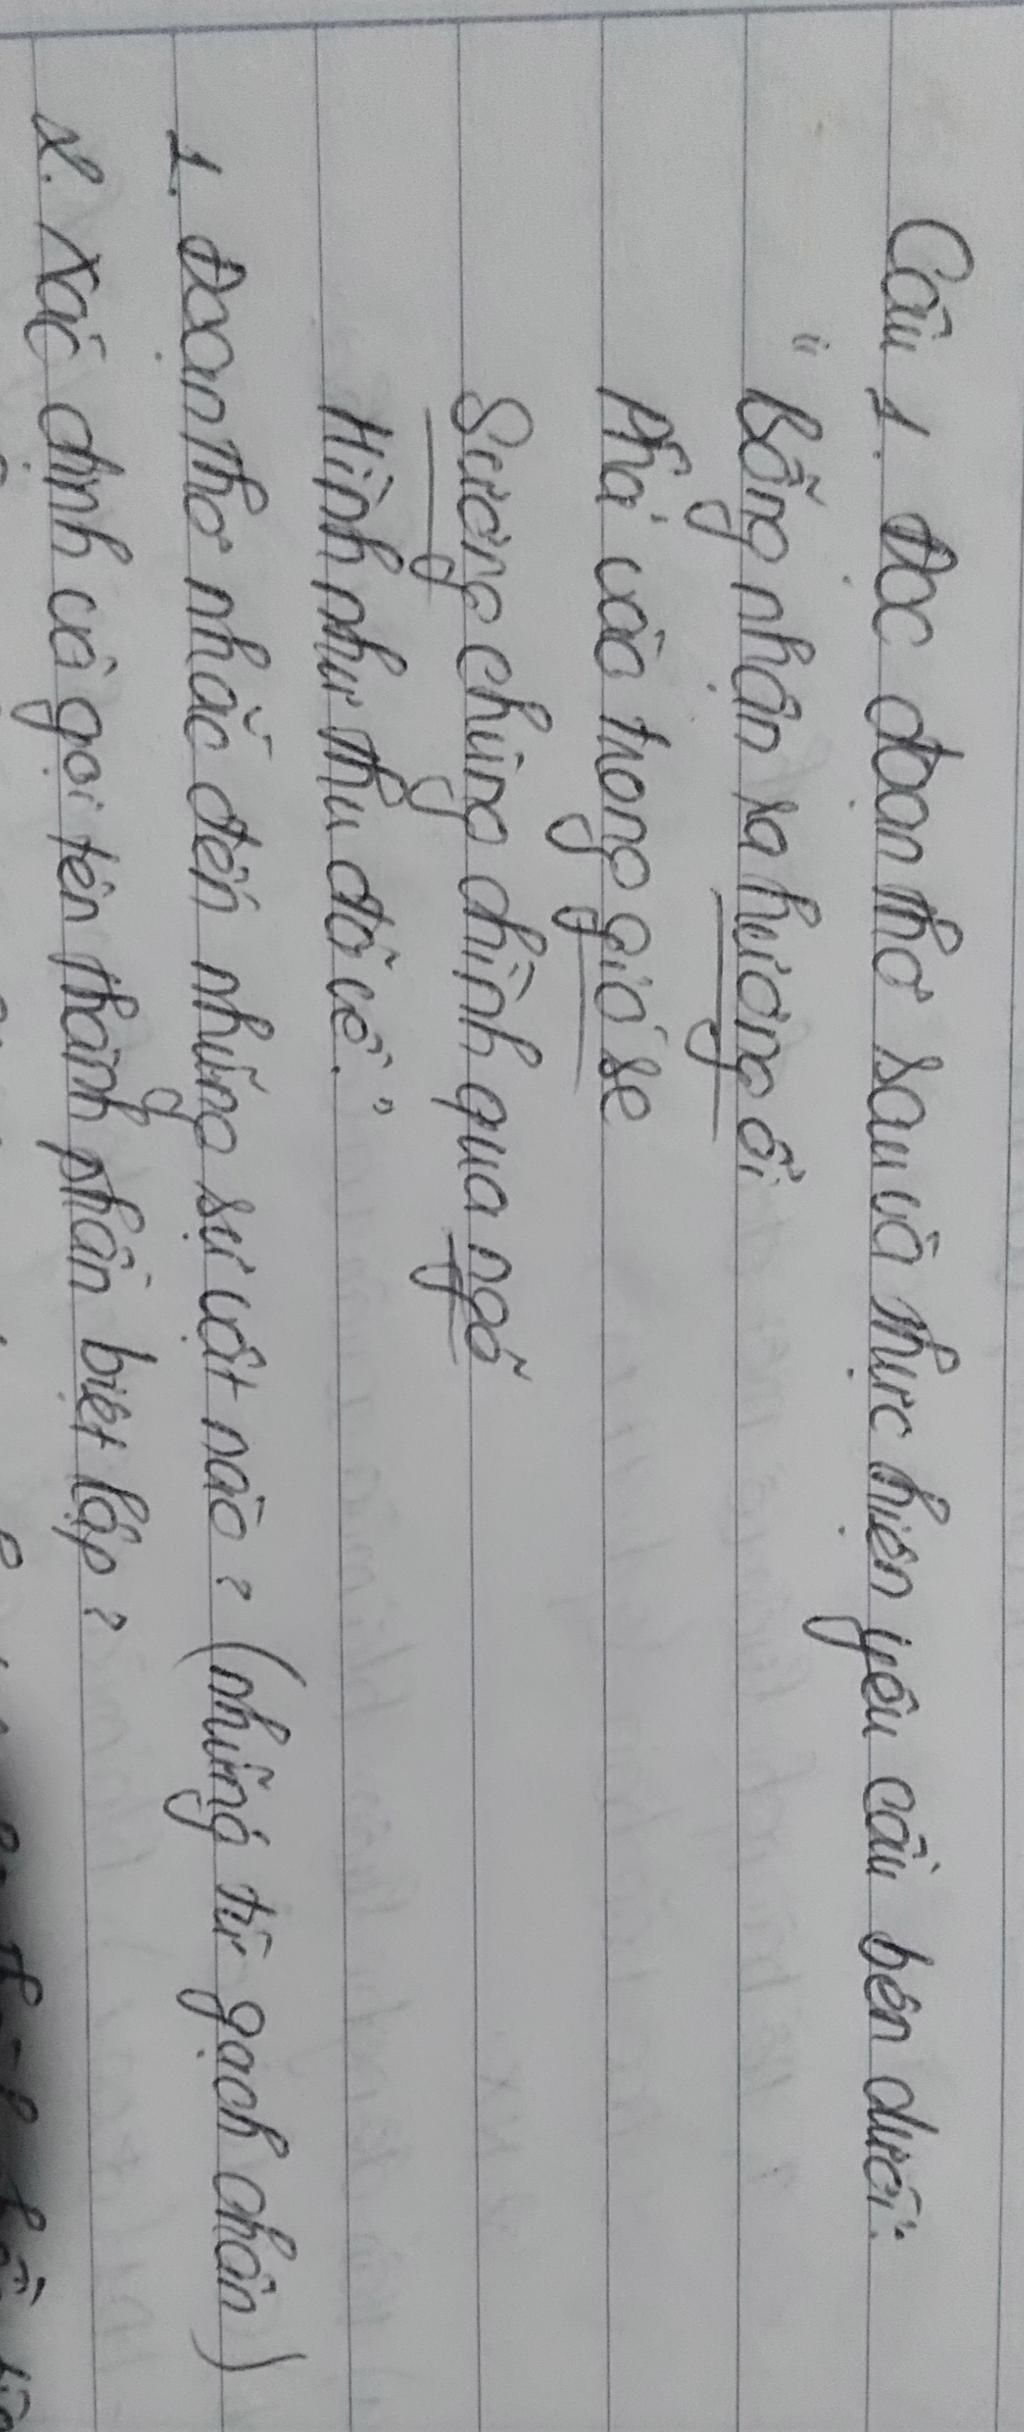 Câu 1. Đọc đoạn thơ sau và thực hiện yêu cầu bên dưới:
"Bỗng nhận ra hương ổi
Phả vào trong gió se
Sương chùng chình qua ngõ
Hình như thu đã về."
1. Đoạn thơ nhắc đến những sự vật nào? (những từ gạch chân)
2. Xác định và gọi tên thành phần biệt lập?